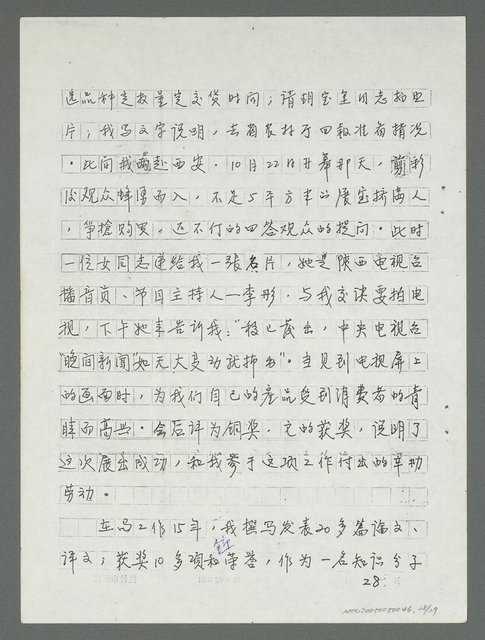 选品种定数量定交货时间；请胡宝玺同志拍照
片；我写文字说明，去省农科厅回报准备情况
。此间我两赴西安。10月22日开幕那天，剪彩
后观众蜂涌而入，不足5平方米的展室挤满人
，争抢购买，还不停的回答观众的提问。此时
一位女同志递给我一张名片，她是陕西电视台
播音员、节目主持人—李彤。与我交谈要拍电
视，下午她来告诉我："稿已发出，中央电视台
晚间新闻"如无大变动就播出"。当见到电视屏上
的画面时，为我们自己的产品受到消费者的青
睐而高兴。会后评为铜奖。它的获奖，说明了
这次展出成功，和我参于这项工作付出的辛勤
劳动。
在马工作15年，我撰写发表20多篇论文、
译文；获奖10多项和荣誉，作为一名知识分子
28
NMTL20050050046, 28/29